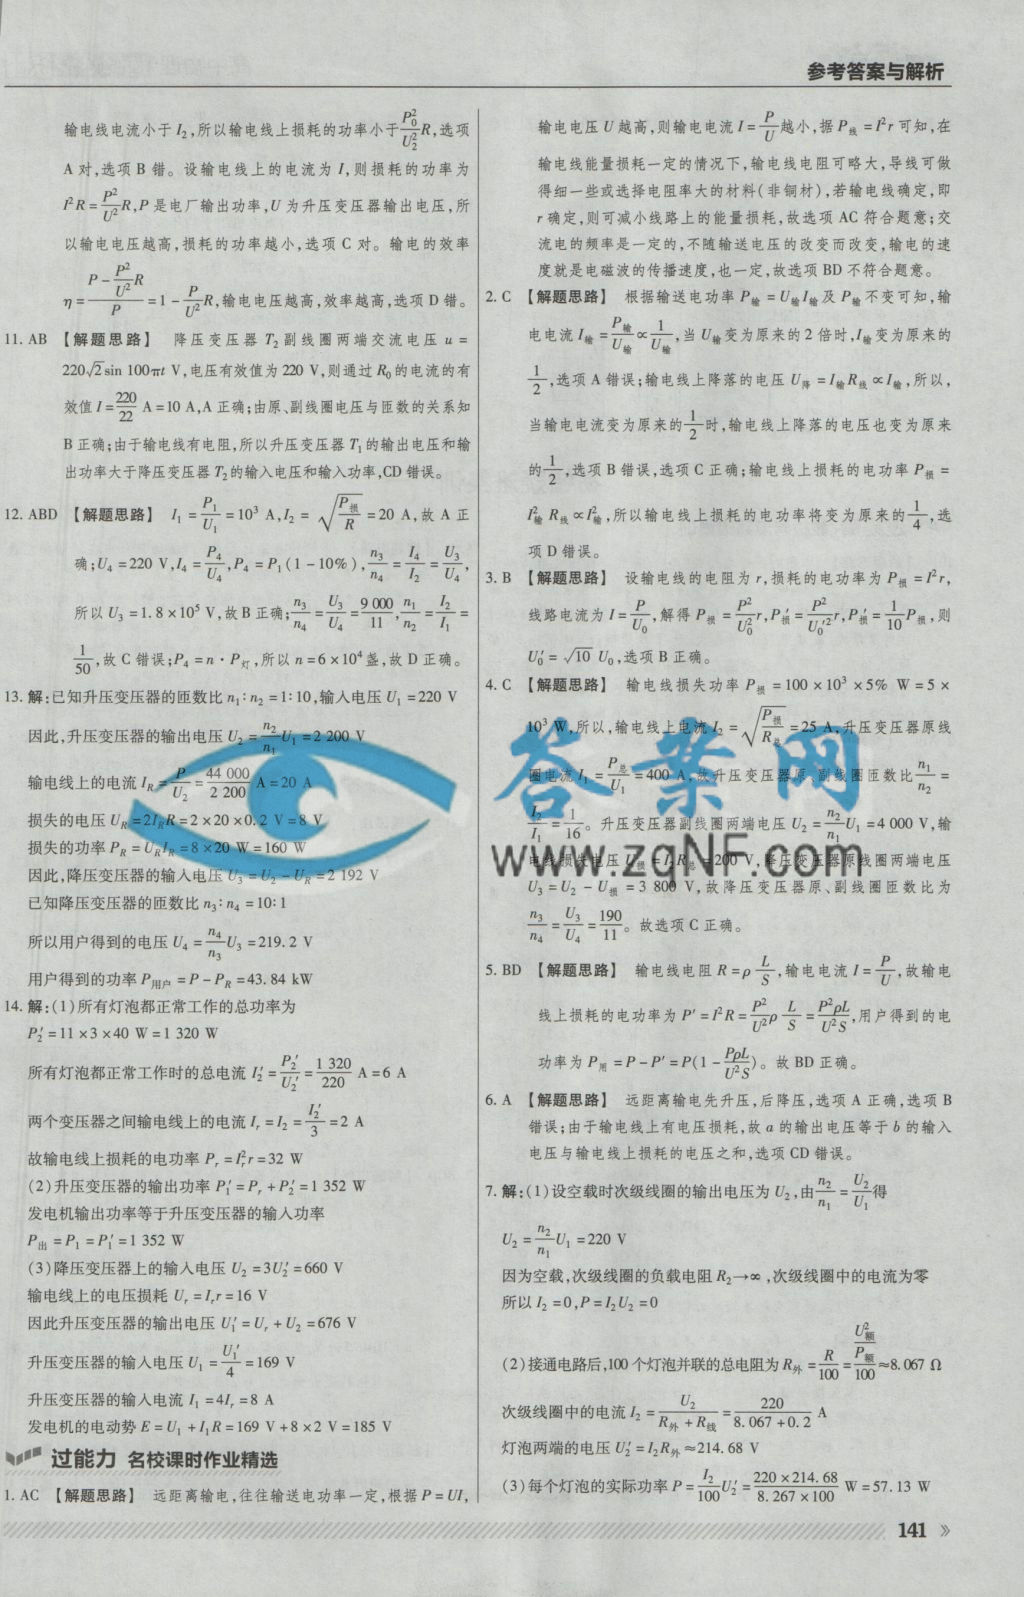 参考答案与解析
输电线电流小于 I₂,所以输电线上损耗的功率小于P₀²/U₂²R,选项
A 对,选项 B 错。设输电线上的电流为 I,则损耗的功率为
I²R=P²/U²R,P 是电厂输出功率,U 为升压变压器输出电压,所
以输电电压越高,损耗的功率越小,选项 C 对。输电的效率
η=(P-P²/U²R)/P=1-P/U²R,输电电压越高,效率越高,选项 D 错。
11. AB 【解题思路】 降压变压器 T₂副线圈两端交流电压 u=
220√2sin 100πt V,电压有效值为 220 V,则通过 R₀的电流的有
效值 I=220/22 A=10 A,A 正确;由原、副线圈电压与匝数的关系知
B 正确;由于输电线有电阻,所以升压变压器 T₁的输出电压和输
出功率大于降压变压器 T₂的输入电压和输入功率,CD 错误。
12. ABD 【解题思路】 I₁=P₁/U₁=10³ A,I₂=√(P损/R)=20 A,故 A 正
确;U₄=220 V,I₄=P₄/U₄,P₄=P₁(1-10%),n₃/n₄=I₄/I₂=U₃/U₄,
所以 U₃=1.8×10⁵ V,故 B 正确;n₃/n₄=U₃/U₄=9 000/11,n₁/n₂=I₂/I₁=
1/50,故 C 错误;P₄=n·P灯,所以 n=6×10⁴盏,故 D 正确。
13. 解:已知升压变压器的匝数比 n₁∶n₂=1∶10,输入电压 U₁=220 V
因此,升压变压器的输出电压 U₂=n₂/n₁U₁=2 200 V
输电线上的电流 I_R=P/U₂=44 000/2 200 A=20 A
损失的电压 U_R=2I_RR=2×20×0.2 V=8 V
损失的功率 P_R=U_RI_R=8×20 W=160 W
因此,降压变压器的输入电压 U₃=U₂-U_R=2 192 V
已知降压变压器的匝数比 n₃∶n₄=10∶1
所以用户得到的电压 U₄=n₄/n₃U₃=219.2 V
用户得到的功率 P用户=P-P_R=43.84 kW
14. 解:(1)所有灯泡都正常工作的总功率为
P₂′=11×3×40 W=1 320 W
所有灯泡都正常工作时的总电流 I₂′=P₂′/U₂′=1 320/220 A=6 A
两个变压器之间输电线上的电流 I_r=I₂=I₂′/3=2 A
故输电线上损耗的电功率 P_r=I_r²r=32 W
(2)升压变压器的输出功率 P₁′=P_r+P₂′=1 352 W
发电机输出功率等于升压变压器的输入功率
P出=P₁=P₁′=1 352 W
(3)降压变压器上的输入电压 U₂=3U₂′=660 V
输电线上的电压损耗 U_r=I_rr=16 V
因此升压变压器的输出电压 U₁′=U_r+U₂=676 V
升压变压器的输入电压 U₁=U₁′/4=169 V
升压变压器的输入电流 I₁=4I_r=8 A
发电机的电动势 E=U₁+I₁R=169 V+8×2 V=185 V
过能力 名校课时作业精选
1. AC 【解题思路】 远距离输电,往往输送电功率一定,根据 P=UI,
输电电压 U 越高,则输电电流 I=P/U越小,据 P线=I²r 可知,在
输电线能量损耗一定的情况下,输电线电阻可略大,导线可做
得细一些或选择电阻率大的材料(非铜材),若输电线确定,即
r 确定,则可减小线路上的能量损耗,故选项 AC 符合题意;交
流电的频率是一定的,不随输送电压的改变而改变,输电的速
度就是电磁波的传播速度,也一定,故选项 BD 不符合题意。
2. C 【解题思路】 根据输送电功率 P输=U输I输及 P输不变可知,输
电电流 I输=P输/U输∝1/U输,当 U输变为原来的 2 倍时,I输变为原来的
1/2,选项 A 错误;输电线上降落的电压 U降=I输R线∝I输,所以,
当输电电流变为原来的1/2时,输电线上降落的电压也变为原来
的1/2,选项 B 错误,选项 C 正确;输电线上损耗的电功率 P损=
I输²R线∝I输²,所以输电线上损耗的电功率将变为原来的1/4,选
项 D 错误。
3. B 【解题思路】 设输电线的电阻为 r,损耗的电功率为 P损=I²r,
线路电流为 I=P/U₀,解得 P损=P²/U₀²r,P损′=P²/U₀′²r,P损′=1/10P损,则
U₀′=√10 U₀,选项 B 正确。
4. C 【解题思路】 输电线损失功率 P损=100×10³×5% W=5×
10³ W,所以,输电线上电流 I₂=√(P损/R总)=25 A,升压变压器原线
圈电流 I₁=P总/U₁=400 A,故升压变压器原、副线圈匝数比=n₁/n₂
=I₂/I₁=1/16。升压变压器副线圈两端电压 U₂=n₂/n₁U₁=4 000 V,输
电线损失电压 U损=I₂R总=200 V,降压变压器原线圈两端电压
U₃=U₂-U损=3 800 V,故降压变压器原、副线圈匝数比为
n₃/n₄=U₃/U₄=190/11。故选项 C 正确。
5. BD 【解题思路】 输电线电阻 R=ρL/S,输电电流 I=P/U,故输电
线上损耗的电功率为 P′=I²R=P²/U²ρL/S=P²ρL/U²S,用户得到的电
功率为 P用=P-P′=P(1-PρL/U²S)。故 BD 正确。
6. A 【解题思路】 远距离输电先升压,后降压,选项 A 正确,选项 B
错误;由于输电线上有电压损耗,故 a 的输出电压等于 b 的输入
电压与输电线上损耗的电压之和,选项 CD 错误。
7. 解:(1)设空载时次级线圈的输出电压为 U₂,由n₂/n₁=U₂/U₁得
U₂=n₂/n₁U₁=220 V
因为空载,次级线圈的负载电阻 R₂→∞,次级线圈中的电流为零
所以 I₂=0,P=I₂U₂=0
(2)接通电路后,100 个灯泡并联的总电阻为 R外=R/100=(U额²/P额)/100≈8.067 Ω
次级线圈中的电流 I₂=U₂/(R外+R线)=220/(8.067+0.2) A
灯泡两端的电压 U₂′=I₂R外≈214.68 V
(3)每个灯泡的实际功率 P=I₂/100U₂′=(220×214.68)/(8.267×100) W=57.13 W
答案网
www.zqNF.com
141